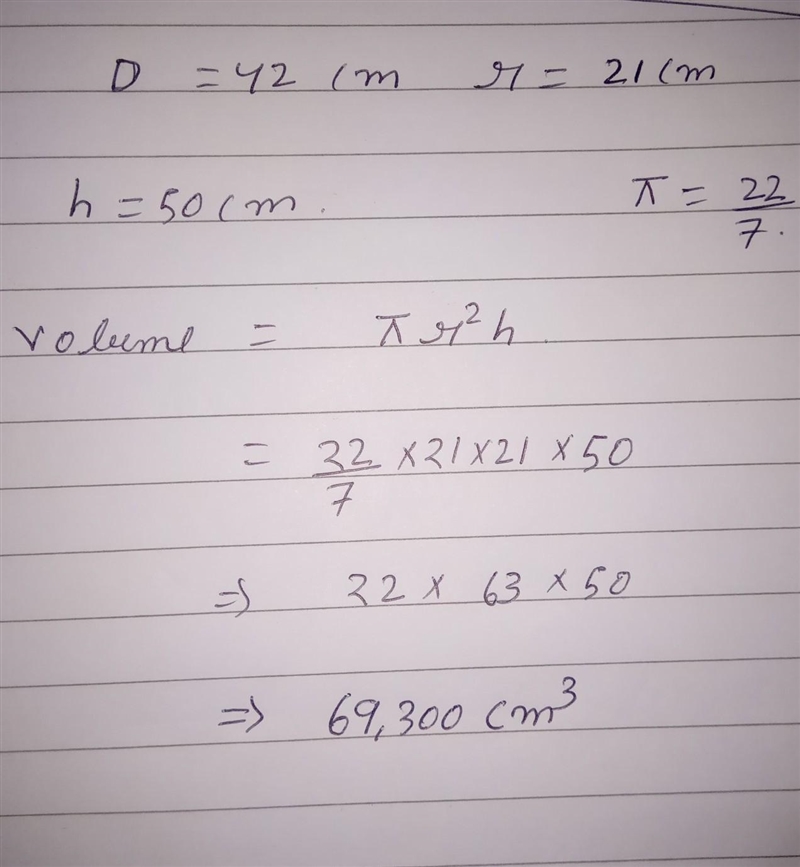 D = 42 cm r = 21 cm
h = 50 cm. π = 22/7.
volume = πr²h.
= 22/7 × 21 × 21 × 50
⇒ 22 × 63 × 50
⇒ 69,300 cm³